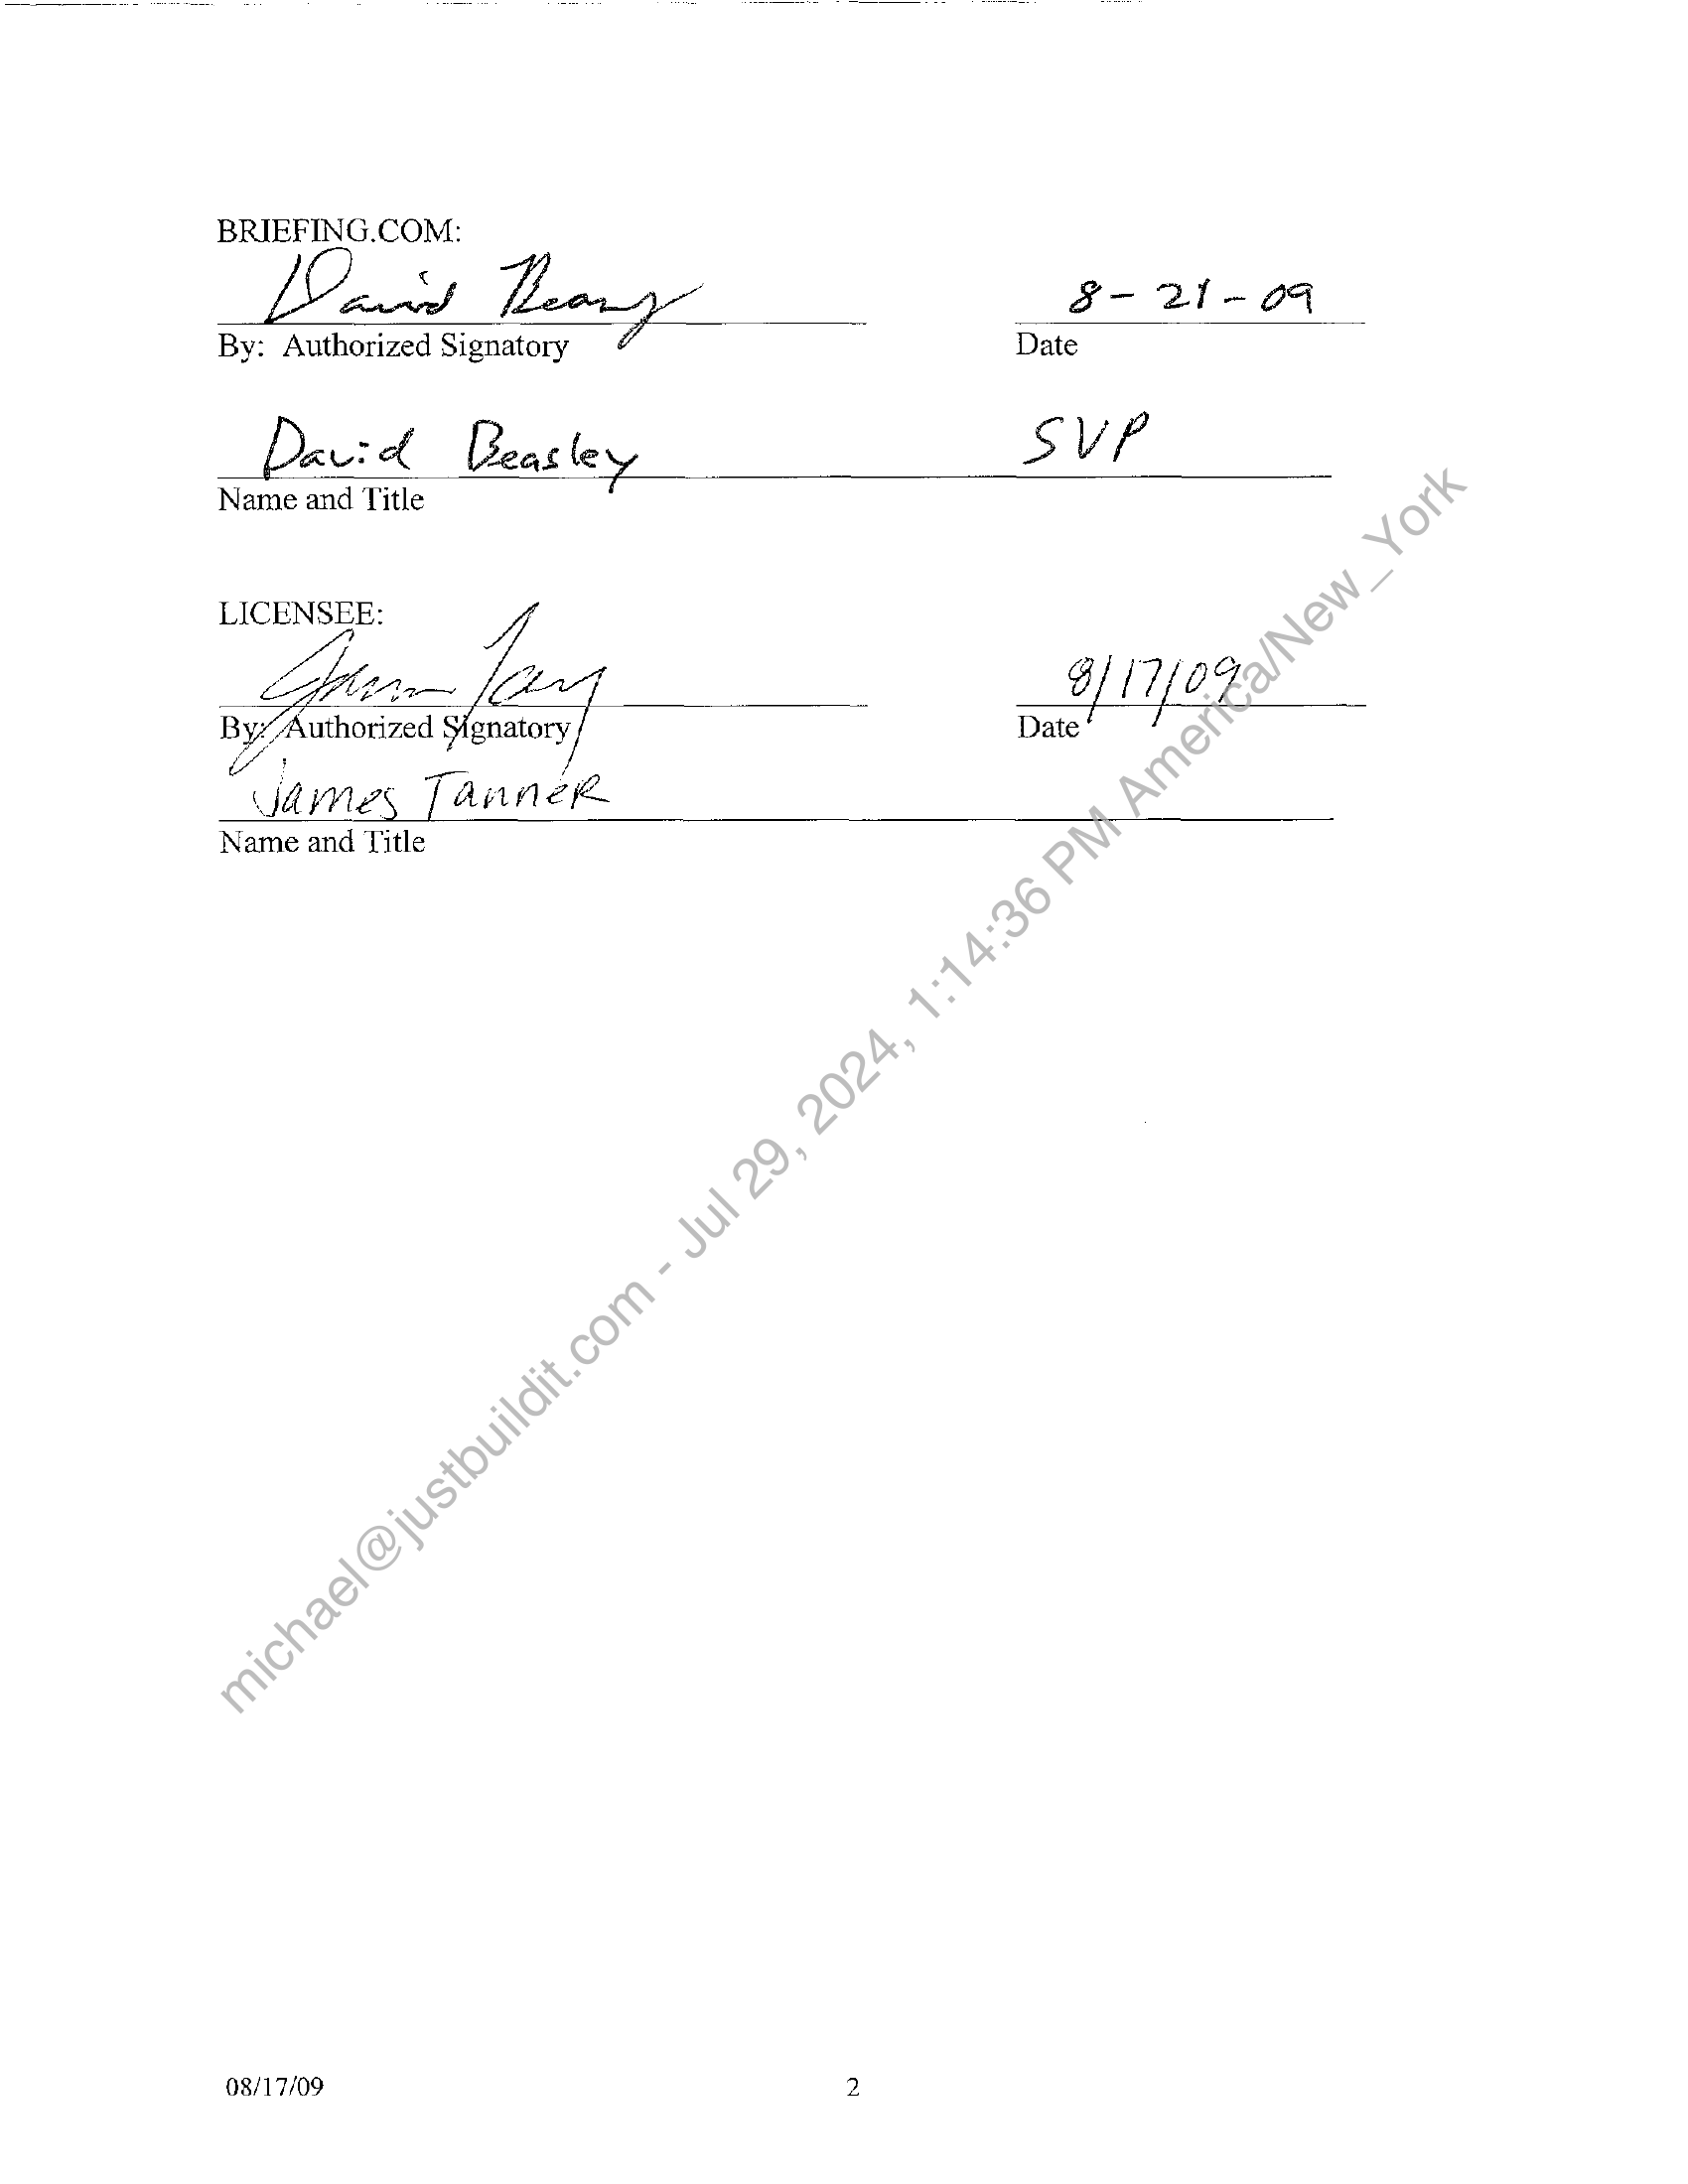 BRIEFING.COM:
David Beasley 8-21-09
By: Authorized Signatory Date
David Beasley SVP
Name and Title
LICENSEE:
8/17/09
By: Authorized Signatory Date
James Tanner
Name and Title
michael@justbuildit.com - Jul 29, 2024, 1:14:36 PM America/New_York
08/17/09 2